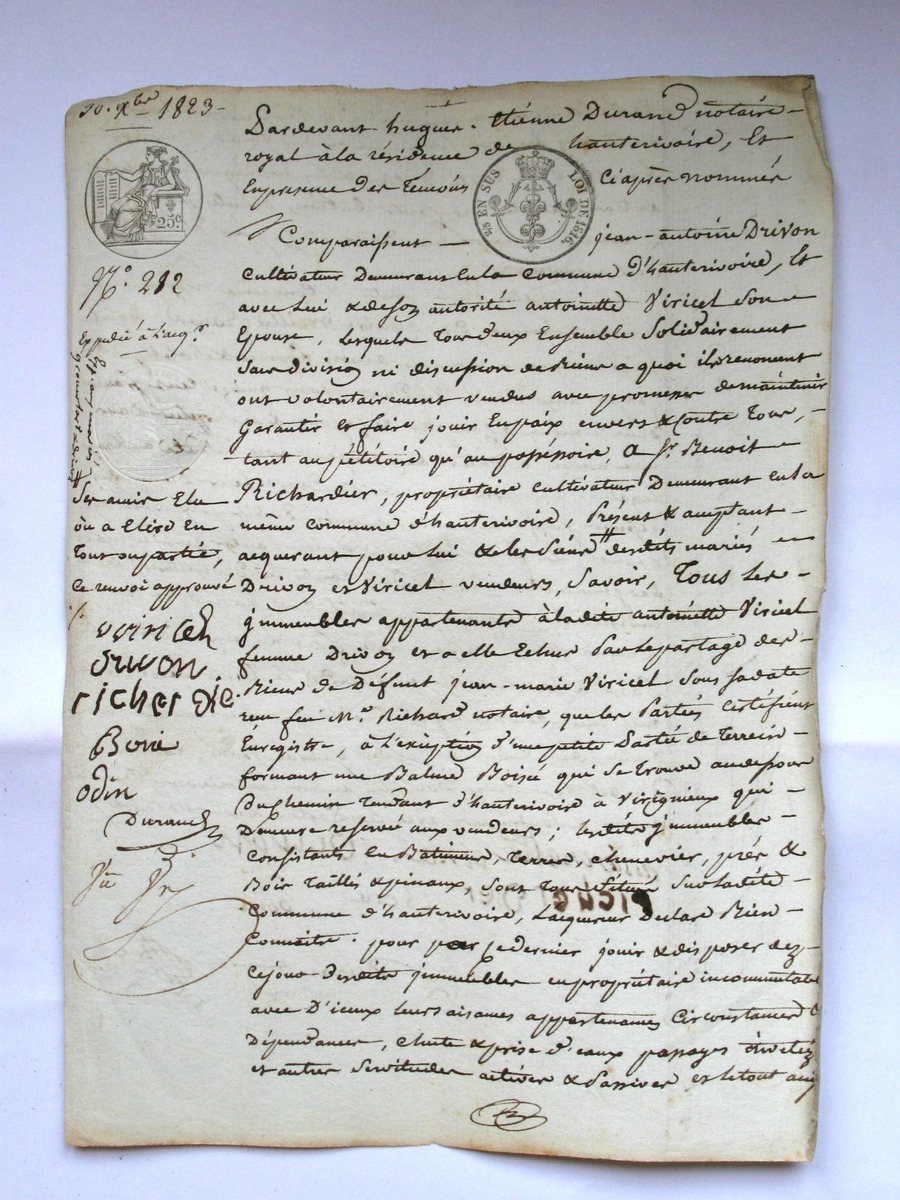 30. Xbre 1823 -
25 c.
25 EN SUS
LOI DE 1816.
N.o 212
Expédié à l'acq.r
Pardevant hugues - Etiénne Durand notaire -
royal à la résidence de hauterivoire, Et
En presence des Temoins Ciaprès nommés
Comparaissent - jean-antoine Drivon
Cultivateur Demeurant En la Commune d'hauterivoire, Et
avec Lui & de son autorité antoinette Viricel Son -
Epouse, Lesquels Tous deux Ensemble Solidairement
Sans division ni discussion de Biens a quoi ils renoncent
ont volontairement vendus avec promesse de maintenir
Garantir et faire jouir En paix envers & contre Tous, -
tant au pétitoire qu'au possessoire, a Sr. Benoit -
Richardier, propriétaire cultivateur Demeurant En la
même commune d'hauterivoire, Présent & acceptant -
acquerant pour lui & les Siens # desdits mariés -
Drivon et Viricel vendeurs, Savoir, Tous les -
jmmeubles appartenants à ladite antoinette Viricel
femme Drivon et a elle Echus Par le partage des -
Biens de Défunt jean-marie Viricel Sous sa date
reçu feu M.e Richard notaire, que les Parties certifient
Enregistré, à L'exception d'une petite Partie de Terrein -
formant une Balme Boisée qui Se Trouve au dessous
Du chemin Tendant d'hauterivoire à Virigneux qui -
Demeure reservée aux vendeurs; lesdits jmmeubles -
Consistants En Batiments, Terres, chenevier, prés &
Bois Taillis & pinaux, sont Tous Situés Sur ladite -
Commune d'hauterivoire, L'acquereur Declare Bien -
Connaitre. pour par ce dernier jouir & disposer dez -
Cejour Desdits jmmeubles en propriétaire incommutable
avec D'iceux leurs aisances appartenances Circonstances &
Dépendances, chute & prise d'eaux passages
et autres Servitudes actives & Passives et le tout
Ses amis Elu
ou a Elire En
Tout ou partie,
Ce renvoi approuvé
viricel
drivon
richerdie
Borie
odin
Durand